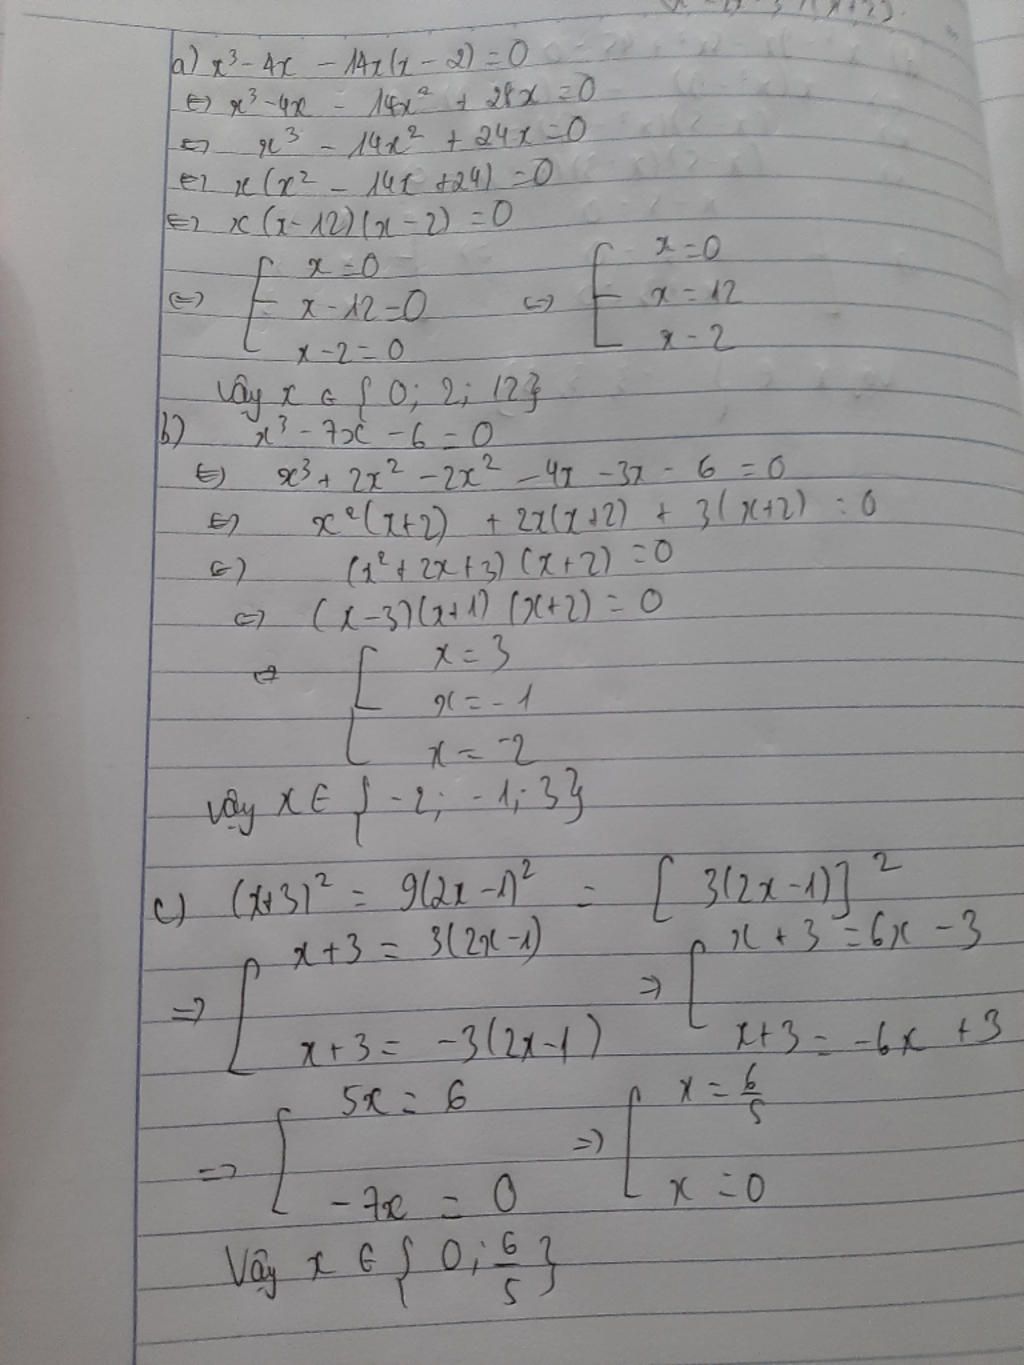 a) x³ - 4x - 14x(x - 2) = 0
⇔ x³ - 4x - 14x² + 28x = 0
⇔ x³ - 14x² + 24x = 0
⇔ x(x² - 14x + 24) = 0
⇔ x(x - 12)(x - 2) = 0
⇔ [ x = 0 ⇔ [ x = 0
x - 12 = 0 x = 12
x - 2 = 0 x - 2
Vậy x ∈ { 0; 2; 12}
b) x³ - 7x - 6 = 0
⇔ x³ + 2x² - 2x² - 4x - 3x - 6 = 0
⇔ x²(x+2) + 2x(x+2) + 3(x+2) = 0
⇔ (x² + 2x + 3)(x + 2) = 0
⇔ (x - 3)(x + 1)(x + 2) = 0
⇔ [ x = 3
x = -1
x = -2
Vậy x ∈ { -2; -1; 3}
c) (x+3)² = 9(2x - 1)² = [ 3(2x - 1)]²
⇒ [ x + 3 = 3(2x - 1) ⇒ [ x + 3 = 6x - 3
x + 3 = -3(2x - 1) x + 3 = -6x + 3
⇒ [ 5x = 6 ⇒ [ x = 6/5
-7x = 0 x = 0
Vậy x ∈ { 0; 6/5 }